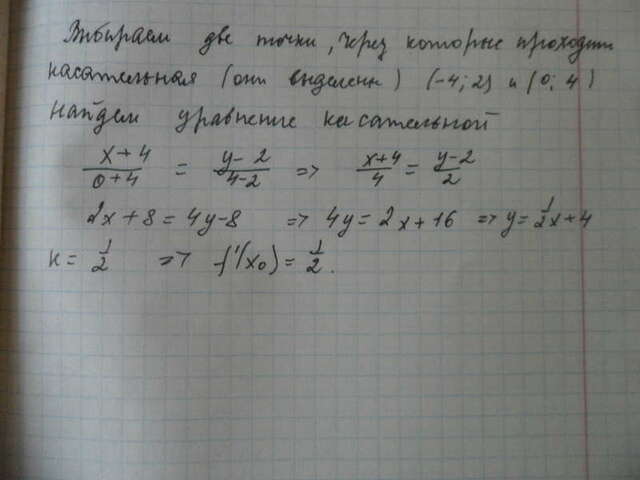 Выбираем две точки, через которые проходит
касательная (они выделены) (-4; 2) и (0; 4)
Найдем уравнение касательной
x+4/0+4 = y-2/4-2 => x+4/4 = y-2/2
2x+8=4y-8 => 4y=2x+16 => y=1/2x+4
к= 1/2 => f'(x0)= 1/2.